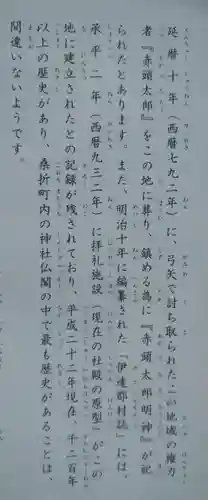 延暦十年（西暦七九二年）に、弓矢で討ち取られたこの地域の権力
者『赤頭太郎』をこの地に葬り、鎮める為に『赤頭太郎明神』が祀
られたとあります。また、明治十年に編纂された『伊達郡村誌』には、
承平二年（西暦九三二年）に拝礼施設（現在の社殿の原型）がこの
地に建立されたとの記録が残されており、平成二十二年現在、千二百年
以上の歴史があり、桑折町内の神社仏閣の中で最も歴史があることは、
間違いないようです。